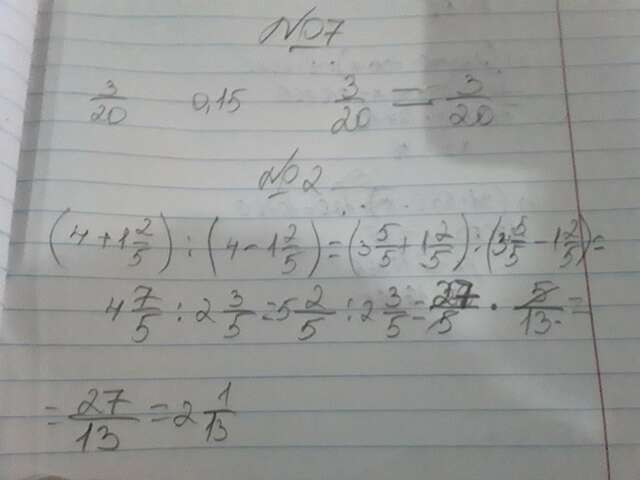 №7
3/20 0,15 3/20 = 3/20
№2
(4 + 1 2/5) : (4 - 1 2/5) = (3 5/5 + 1 2/5) : (3 5/5 - 1 2/5) =
4 7/5 : 2 3/5 = 5 2/5 : 2 3/5 = 27/5 · 5/13 =
= 27/13 = 2 1/13